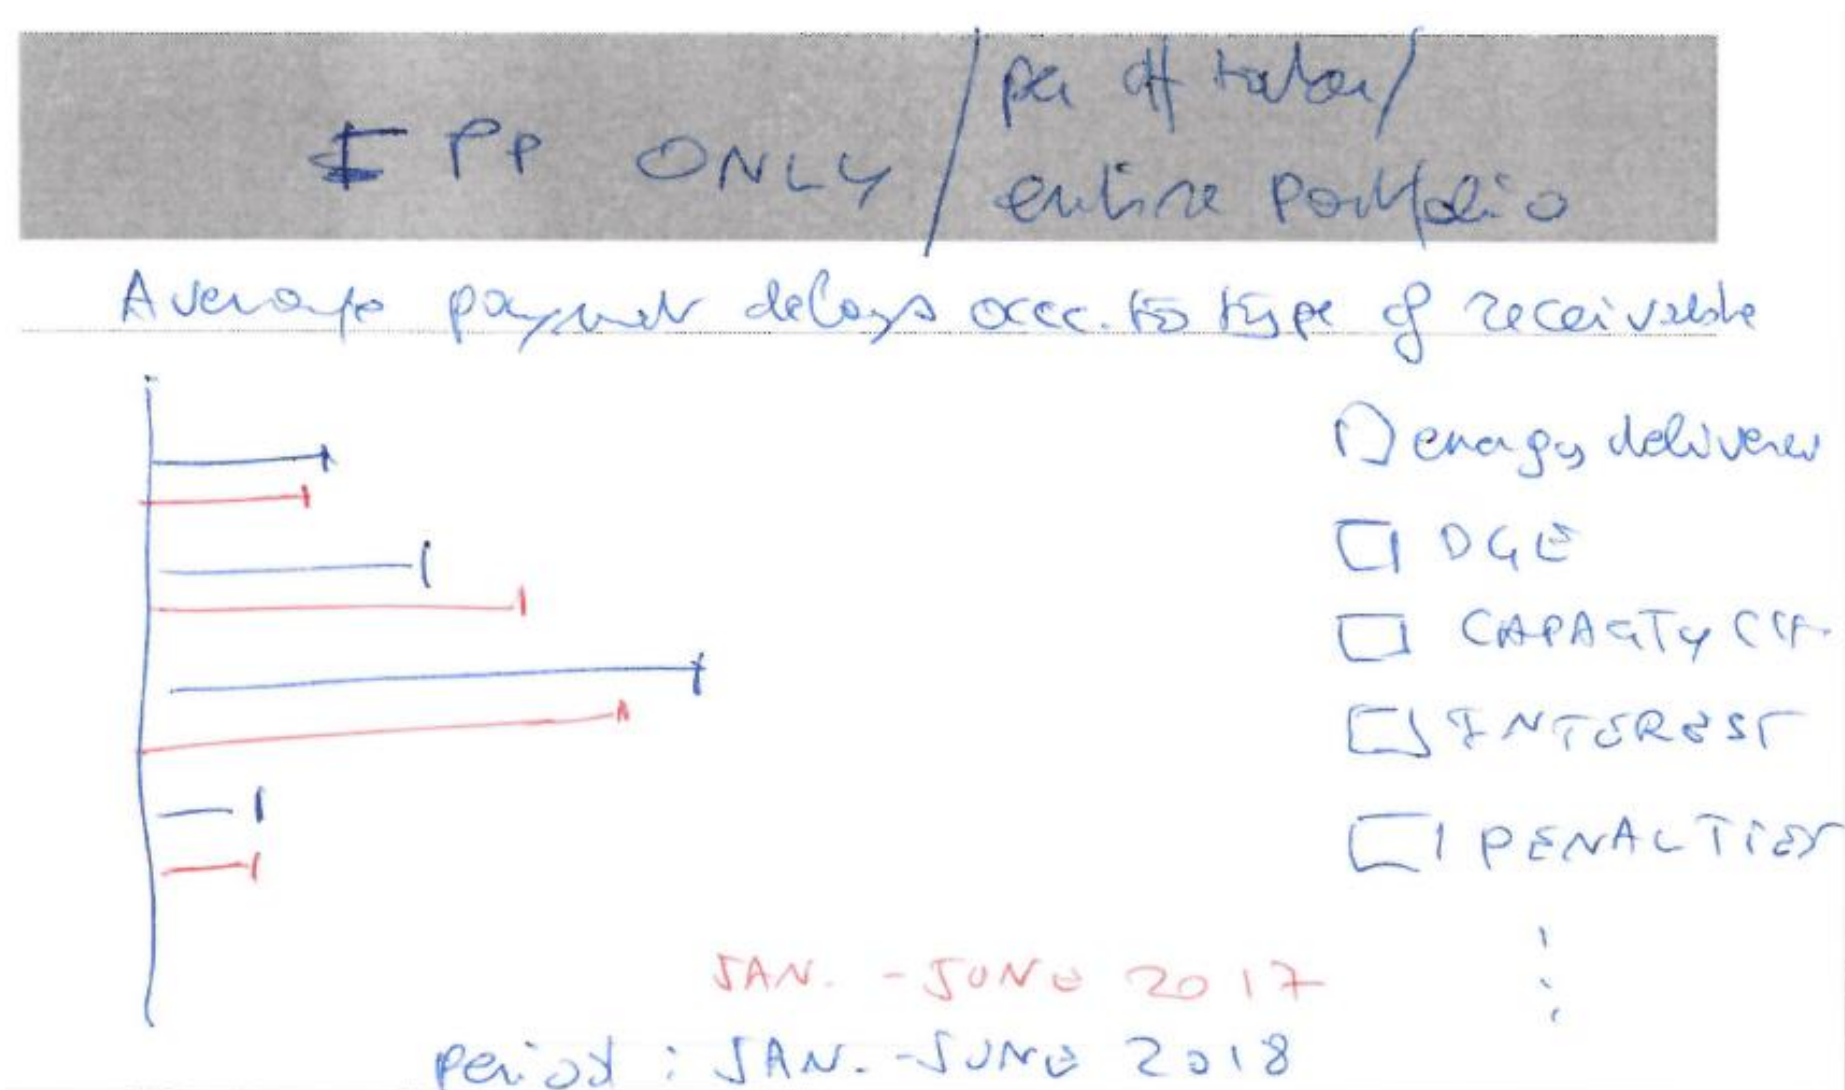 IPP ONLY / per off taker /
entire portfolio
Average payment delays acc. to type of receivable
energy delivered
DGE
CAPACITY CH.
INTEREST
PENALTIES
JAN. - JUNE 2017
period : JAN. - JUNE 2018